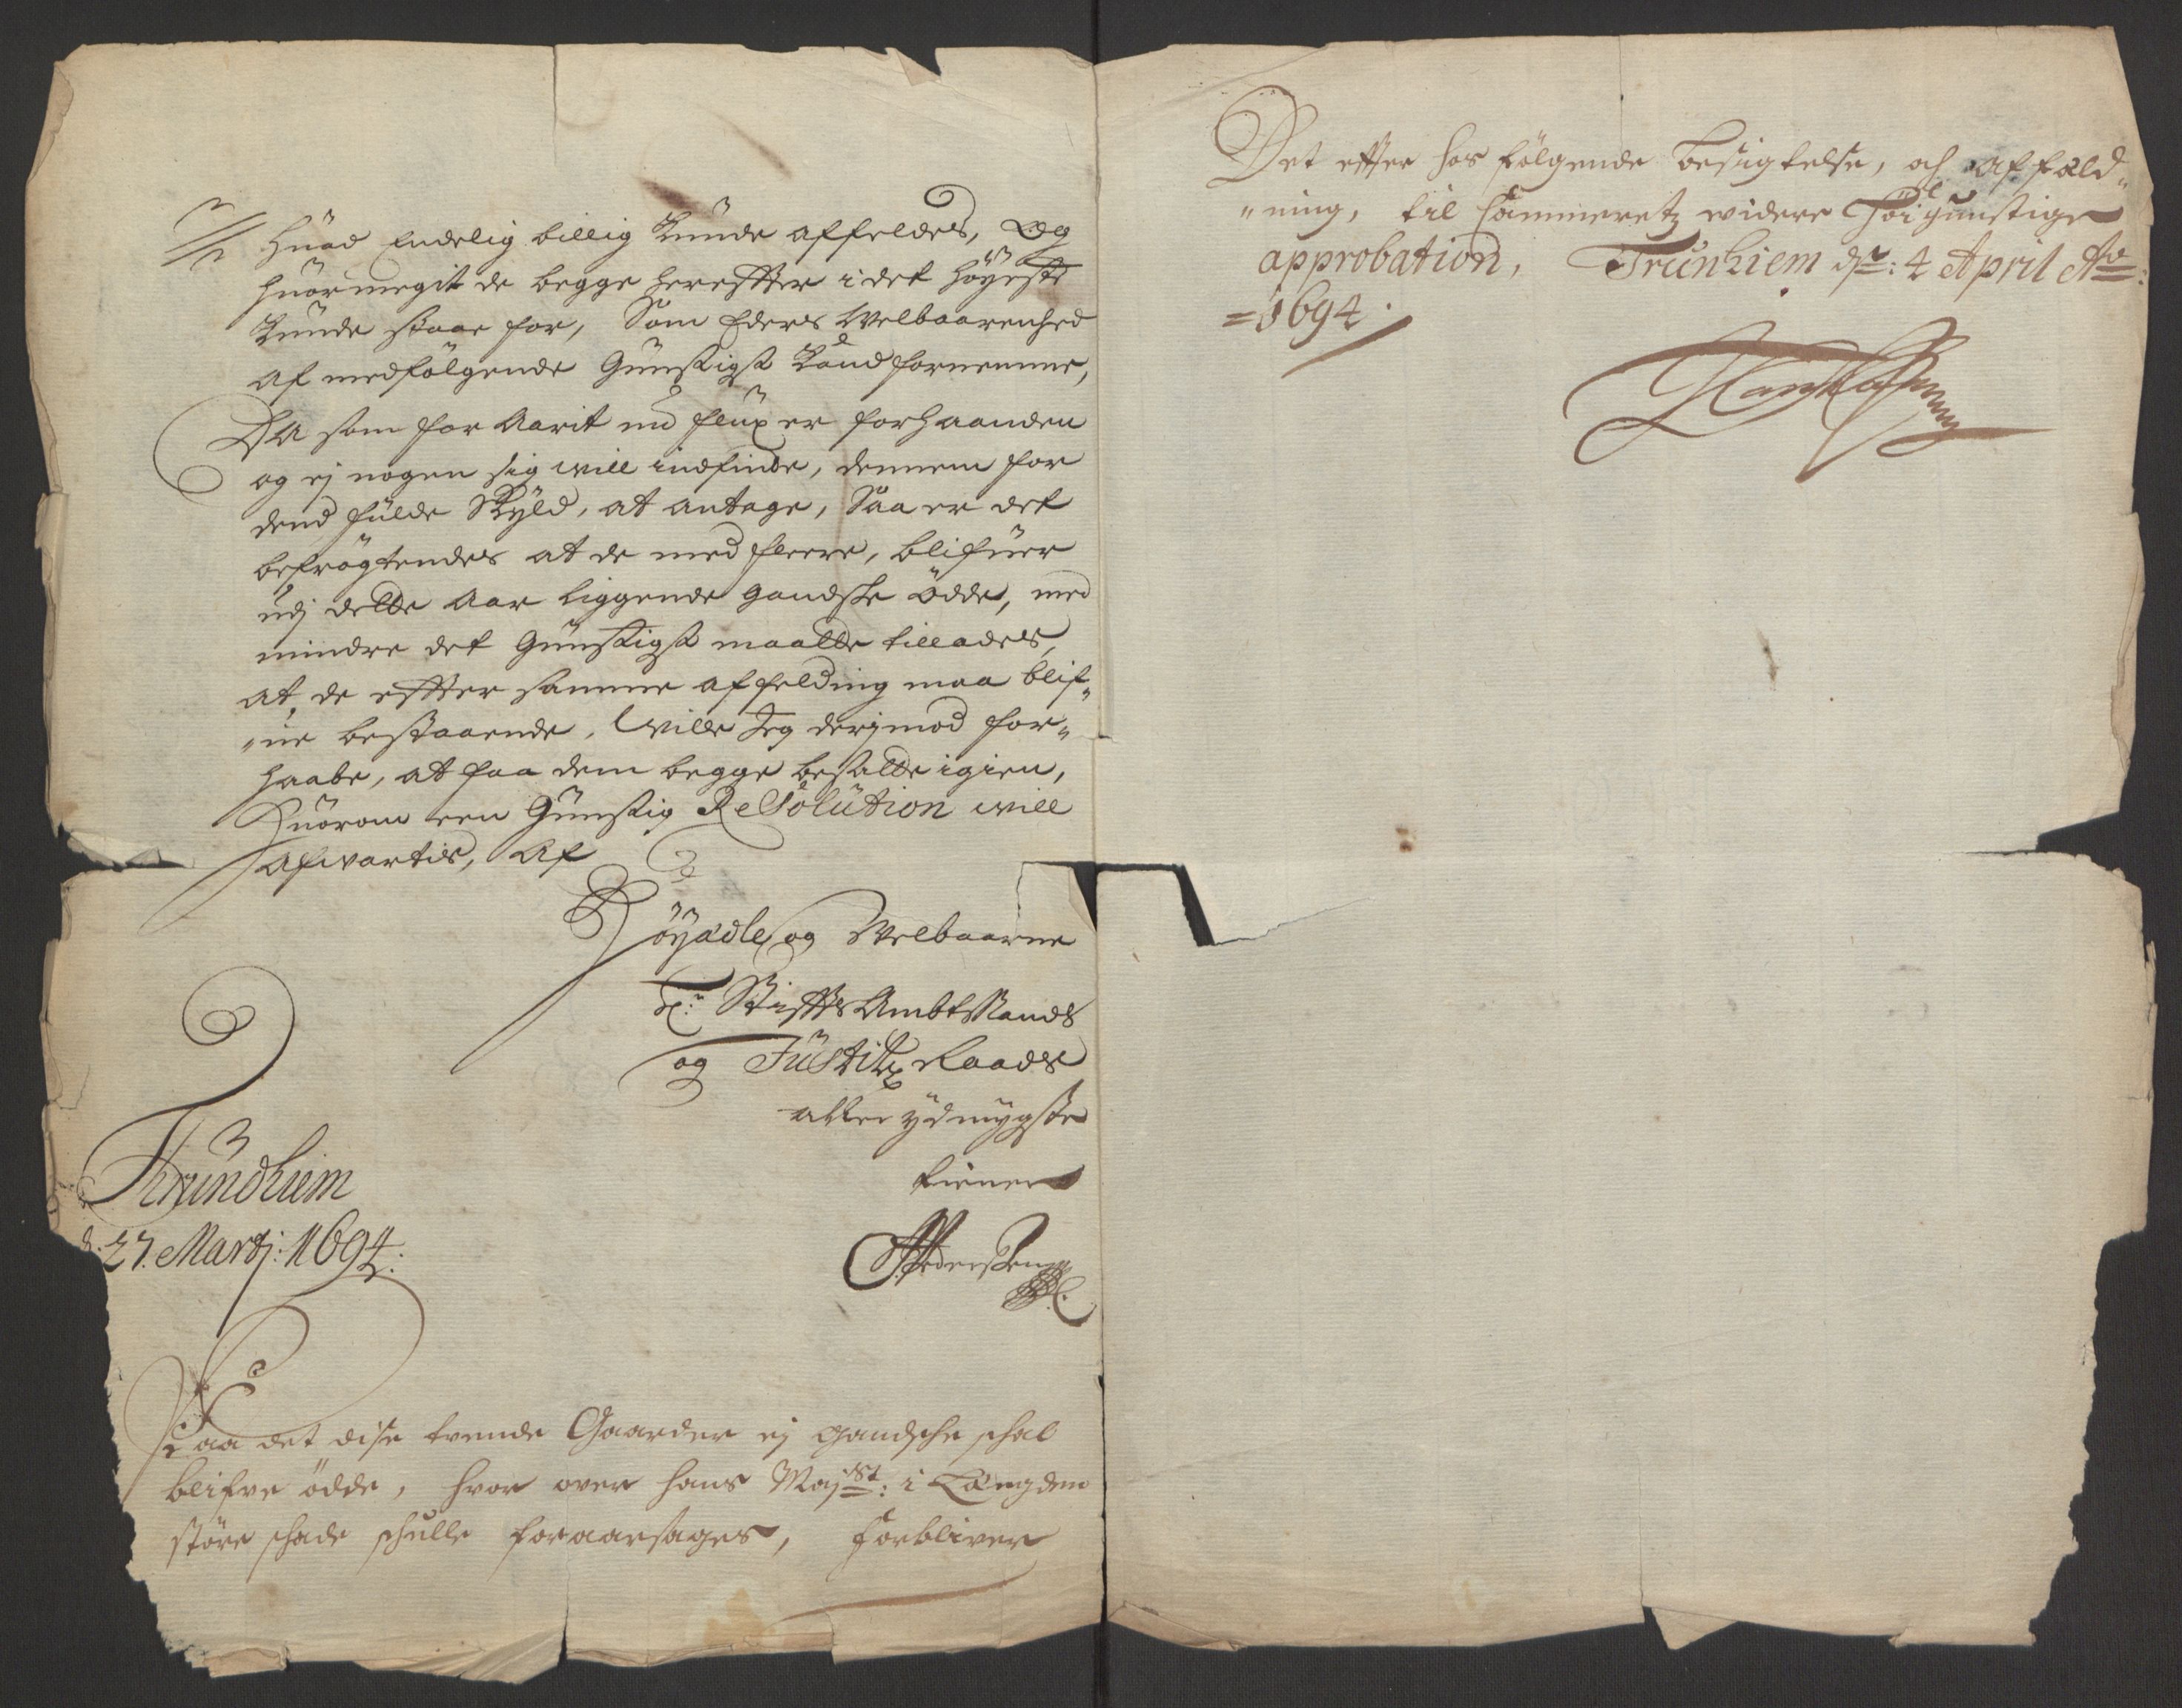 huad Endelig billig Kunde affeldes, Og
huormegit de begge hereffter i det höyeste
Kunde staar for, Som Eders Welbaarenhed
af medfölgende Gunstigst Kand fornemme,
Da som for Aarit nu flux er forhaanden
og ej nogen sig will indfinde, dennem for
dend fulde Skyld, at antage, Saa er det
befrögtendes at de med fleere, blifuer
udj dette Aar liggende gandske ödde, med
mindre det Gunstigst maatte tillades,
at de effter samme affelding maa blif„
„ue bestaaende, Wille Jeg derjmod for„
haabe, at faa dem begge besatte igien,
Huorom een Gunstig Resolution will
afwartis, Af
Höyädle og Welbaarne
Hr: Stiffts Ambtmands
og Justitz Raads
aller ydmygste
tiener
Pedersen
Trundhiem
d: 27. Martj: 1694:
Paa det disse tvende Gaarder ej gandsche schal
blifve ödde, hvor over hans Majst: i Længden
störe schade schulle foraarsages, Forbliver
Det effter hos fölgende Besigtelse, och affæld„
„ning, til Cammeretz widere Höigunstige
approbation, Trunhiem dn: 4 April Ao:
=1694.